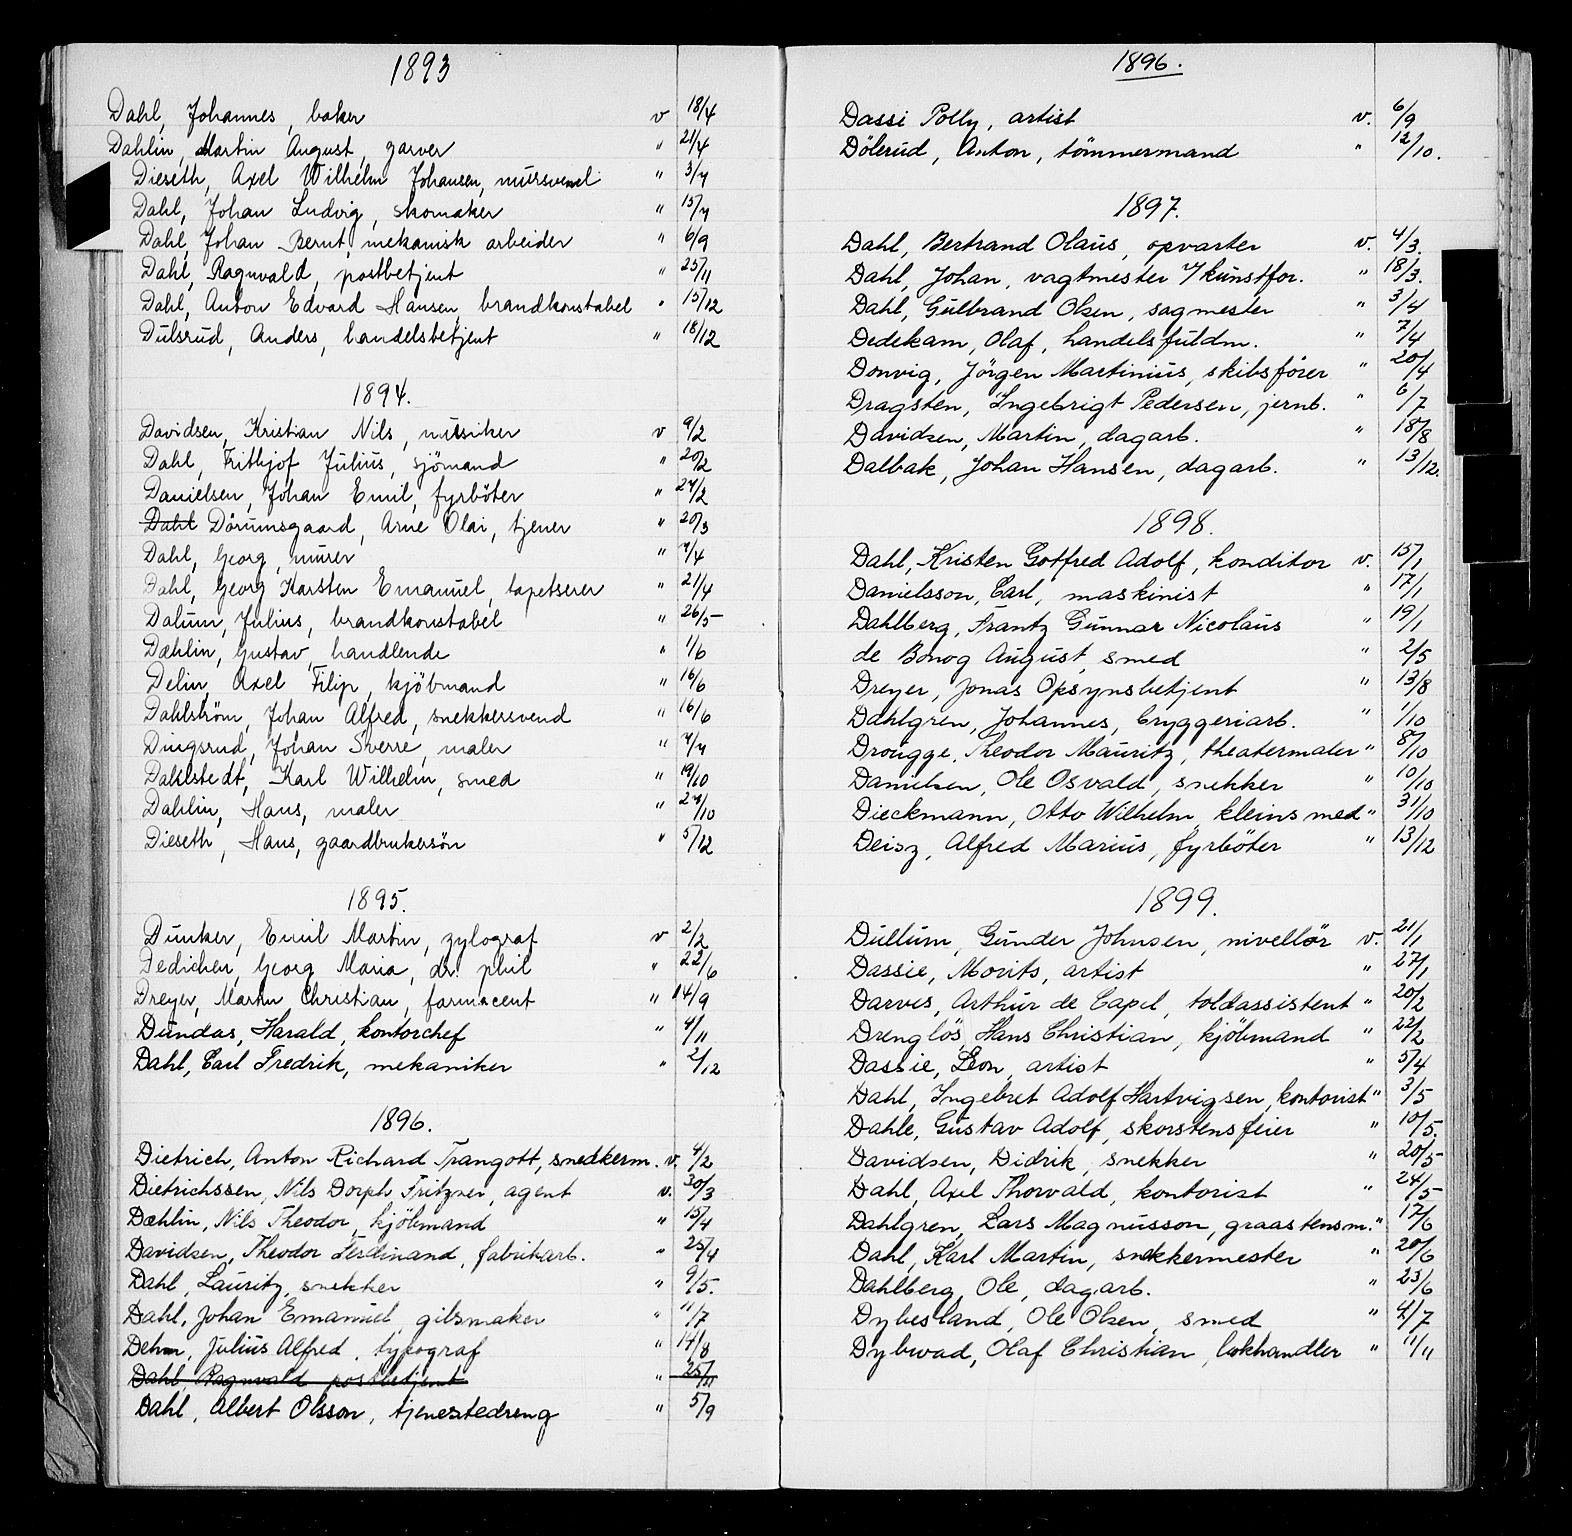 1893
Dahl, Johannes, baker v 18/4
Dahlin, Martin August, garver " 21/4
Dieseth, Axel Wilhelm Johansen, mursvend " 3/7
Dahl, Johan Ludvig, skomaker " 15/7
Dahl, Johan Bernt, mekanisk arbeider " 6/9
Dahl, Ragnvald, postbetjent " 25/11
Dahl, Anton Edvard Hansen, brandkonstabel " 15/12
Dulsrud, Anders, handelsbetjent " 18/12
1894.
Davidsen, Kristian Nils, musiker v 9/2
Dahl, Frithjof Julius, sjömand " 20/2
Danielsen, Johan Emil, fyrböter " 27/2
Dahl Dörumsgaard, Arne Olai, tjener " 20/3
Dahl, Georg, murer " 7/4
Dahl, Georg Karsten Emanuel, tapetserer " 21/4
Dalum, Julius, brandkonstabel " 26/5
Dæhlin, Gustav, handlende " 1/6
Delin, Axel Filip, kjöbmand " 16/6
Dahlström, Johan Alfred, snekkersvend " 16/6
Dingsrud, Johan Sverre, maler " 7/7
Dahlstedt, Karl Wilhelm, smed " 19/10
Dahlin, Hans, maler " 27/10
Dieseth, Hans, gaardbrukersön " 5/12
1895.
Dunker, Emil Martin, zylograf v 2/2
Dedichen, Georg Maria, dr. phil " 22/6
Dreyer, Martin Christian, farmaceut " 14/9
Dundas, Harald, kontorchef " 4/11
Dahl, Carl Fredrik, mekaniker " 2/12
1896.
Dietrich, Anton Richard Trangott, snedkerm. v. 4/2
Dietrichssen, Nils Dorph Fritzner, agent v. 30/3
Dæhlin, Nils Theodor, kjöbmand " 15/4
Davidsen, Theodor Ferdinand, fabrikarb. " 25/4
Dahl, Lauritz, snekker " 9/5.
Dahl, Johan Emanuel, gibsmaker " 11/7
Dehm, Julius Alfred, typograf " 14/8
Dahl, Ragnvald postbetjent " 25/11
Dahl, Albert Olsson, tjenestedreng " 5/9
1896.
Dassi Polly, artist v. 6/9
Dölerud, Anton, tömmermand " 12/10.
1897.
Dahl, Bertrand Olaus, opvarter v. 4/3.
Dahl, Johan, vagtmester v/ kunstfor. " 18/3.
Dahl, Gulbrand Olsen, sagmester " 3/4
Dedekam, Olaf, handelsfuldm. " 7/4
Donvig, Jörgen Martinius, skibsförer " 20/4
Dragsten, Ingebrigt Pedersen, jernb. " 6/7
Davidsen, Martin, dagarb. " 18/8
Dalbak, Johan Hansen, dagarb. " 13/12.
1898.
Dahl, Kristen Gotfred Adolf, konditor v. 15/1
Danielsson, Carl, maskinist " 17/1
Dahlberg, Frantz Gunnar Nicolaus " 19/1
de Bonog August, smed " 2/5
Dreyer, Jonas Opsynsbetjent " 13/8
Dahlgren, Johannes, bryggeriarb. " 1/10
Drougge, Theodor Mauritz, theatermaler " 8/10
Danielsen, Ole Osvald, snekker " 10/10
Dieckmann, Otto Wilhelm, kleinsmed " 31/10
Deisz, Alfred Marius, fyrböter " 13/12
1899.
Dullum, Gunder Johnsen, nivellör v. 21/1
Dassie, Morits, artist " 27/1
Darves, Arthur de Capel, toldassistent " 20/2
Drenglös, Hans Christian, kjöbmand " 22/2
Dassie, Leon, artist " 5/4
Dahl, Ingebret Adolf Hartvigsen, kontorist " 3/5
Dahle, Gustav Adolf, skorstensfeier " 10/5.
Davidsen, Didrik, snekker " 20/5
Dahl, Axel Thorvald, kontorist " 24/5
Dahlgren, Lars Magnusson, graastensm. " 17/6
Dahl, Karl Martin, snekkermester " 20/6
Dahlberg, Ole, dagarb. " 23/6
Dybesland, Ole Olsen, smed " 4/7
Dybwad, Olaf Christian, bokhandler " 11/11